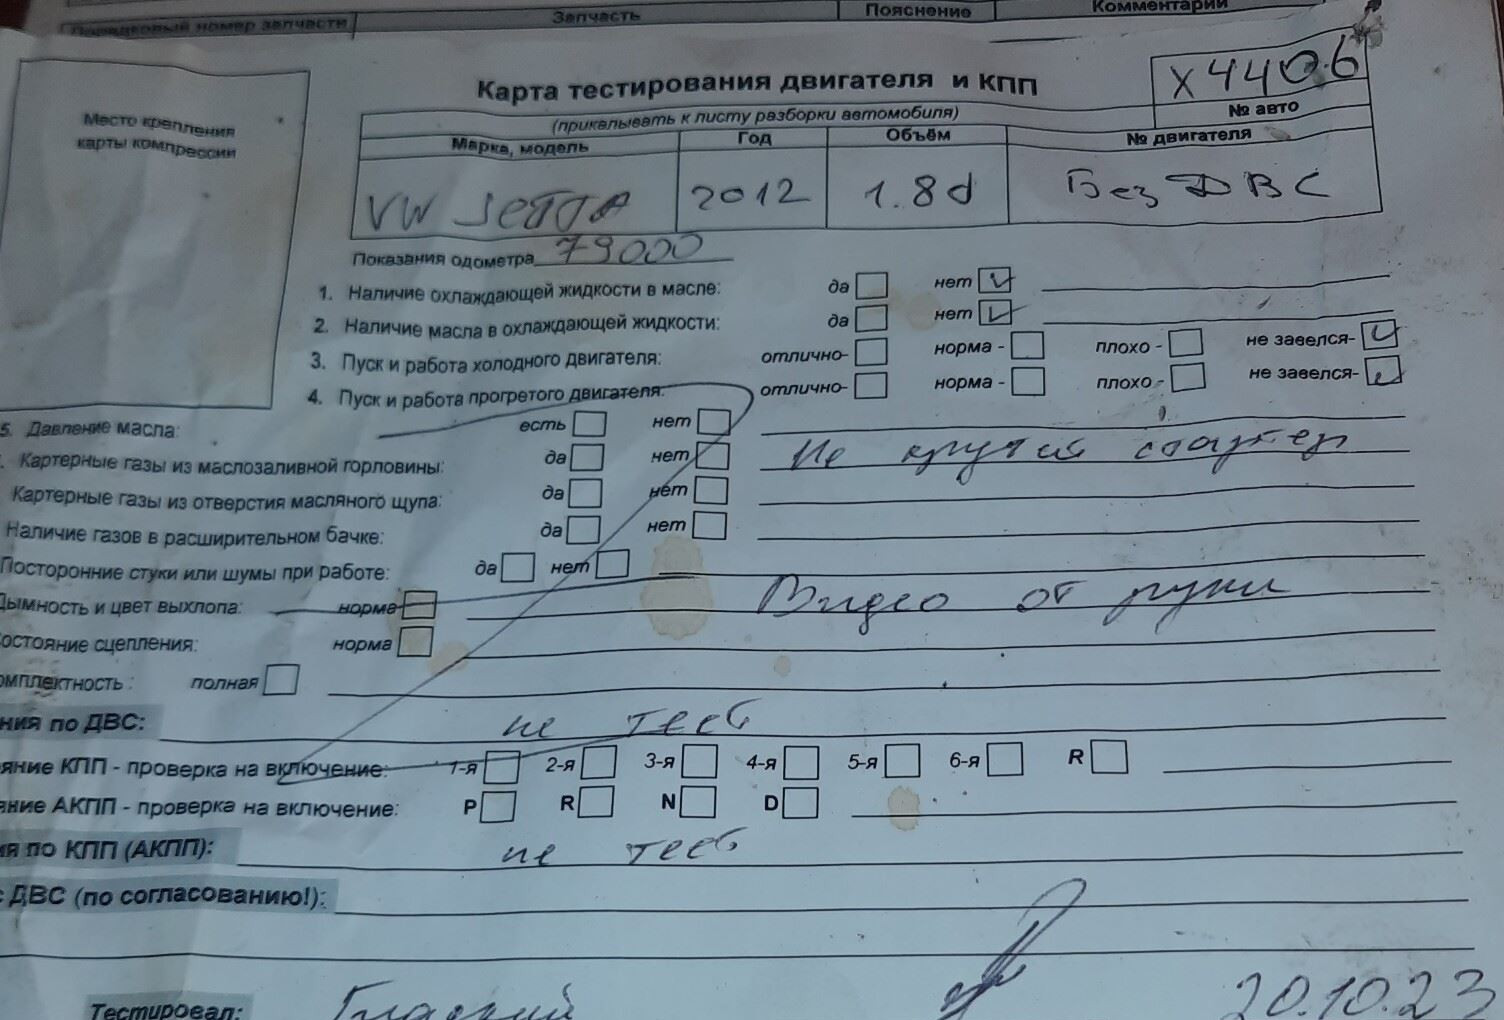 Порядковый номер запчасти Запчасть Пояснение Комментарии
Место крепления
карты компрессии
Карта тестирования двигателя и КПП
X4406
№ авто
(прикалывать к листу разборки автомобиля)
Марка, модель Год Объём № двигателя
VW JETTA 2012 1.8d Без ДВС
Показания одометра 79000
1. Наличие охлаждающей жидкости в масле: да нет
2. Наличие масла в охлаждающей жидкости: да нет
3. Пуск и работа холодного двигателя: отлично- норма - плохо - не завелся-
4. Пуск и работа прогретого двигателя: отлично- норма - плохо - не завелся-
5. Давление масла: есть нет
. Картерные газы из маслозаливной горловины: да нет Не крутил стартер
Картерные газы из отверстия масляного щупа: да нет
Наличие газов в расширительном бачке: да нет
Посторонние стуки или шумы при работе: да нет
Дымность и цвет выхлопа: норма Видео от руки
остояние сцепления: норма
омплектность : полная
ния по ДВС: не тест
яние КПП - проверка на включение: 1-я 2-я 3-я 4-я 5-я 6-я R
яние АКПП - проверка на включение: P R N D
ия по КПП (АКПП): не тест
с ДВС (по согласованию!):
Тестировал: 20.10.23